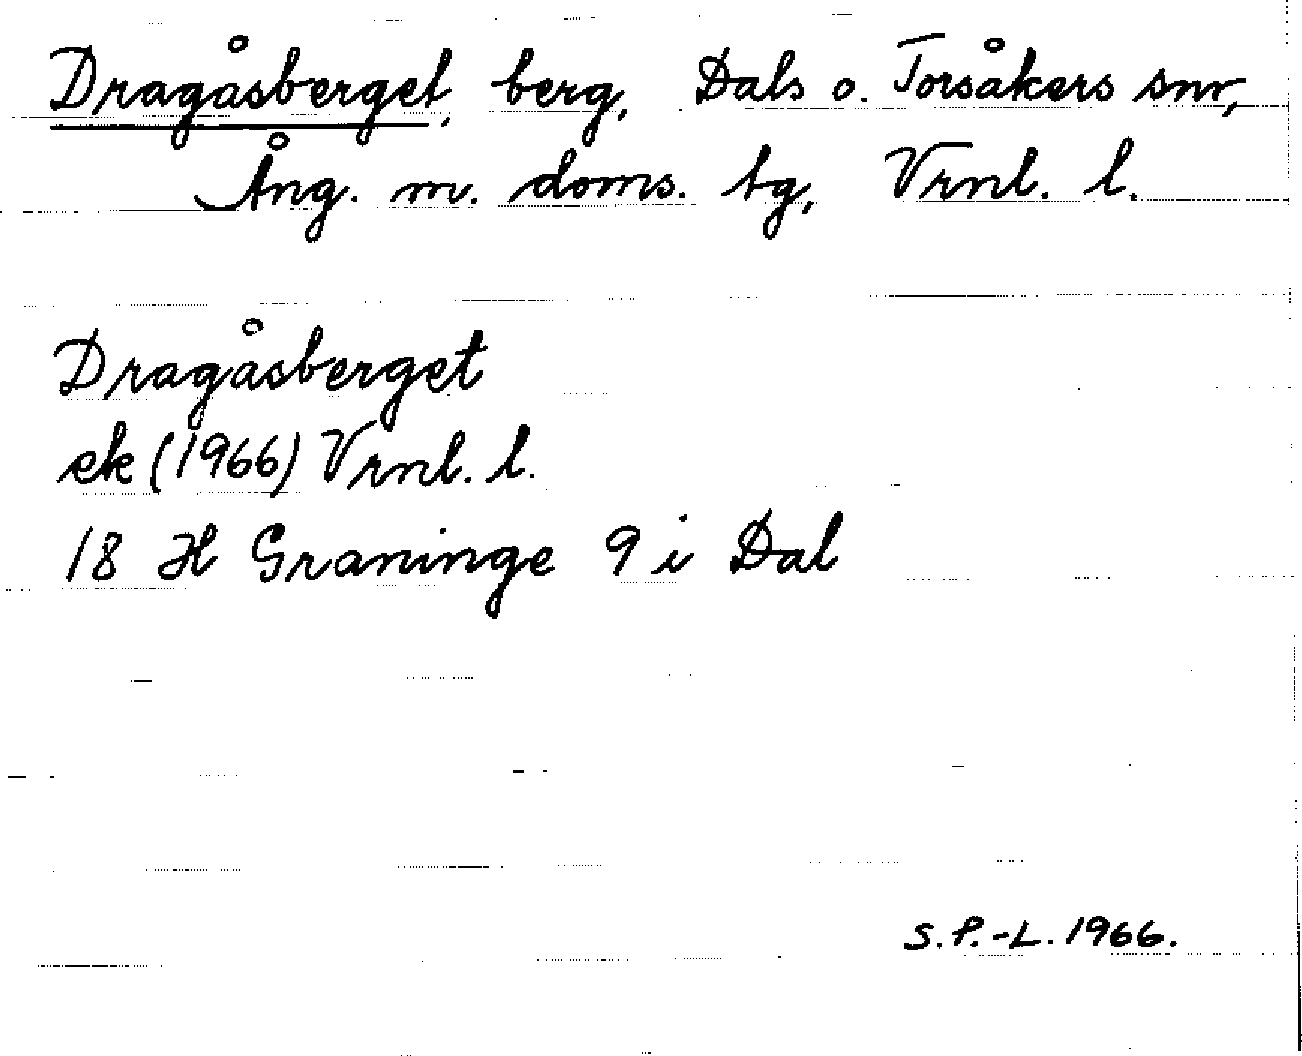 Dragåsberget, berg, Dals o. Torsåkers snr,
Ång. m. doms. tg, Vrnl. l.
Dragåsberget
ek (1966) Vrnl. l.
18 H Graninge 9 i Dal
S.P.-L. 1966.